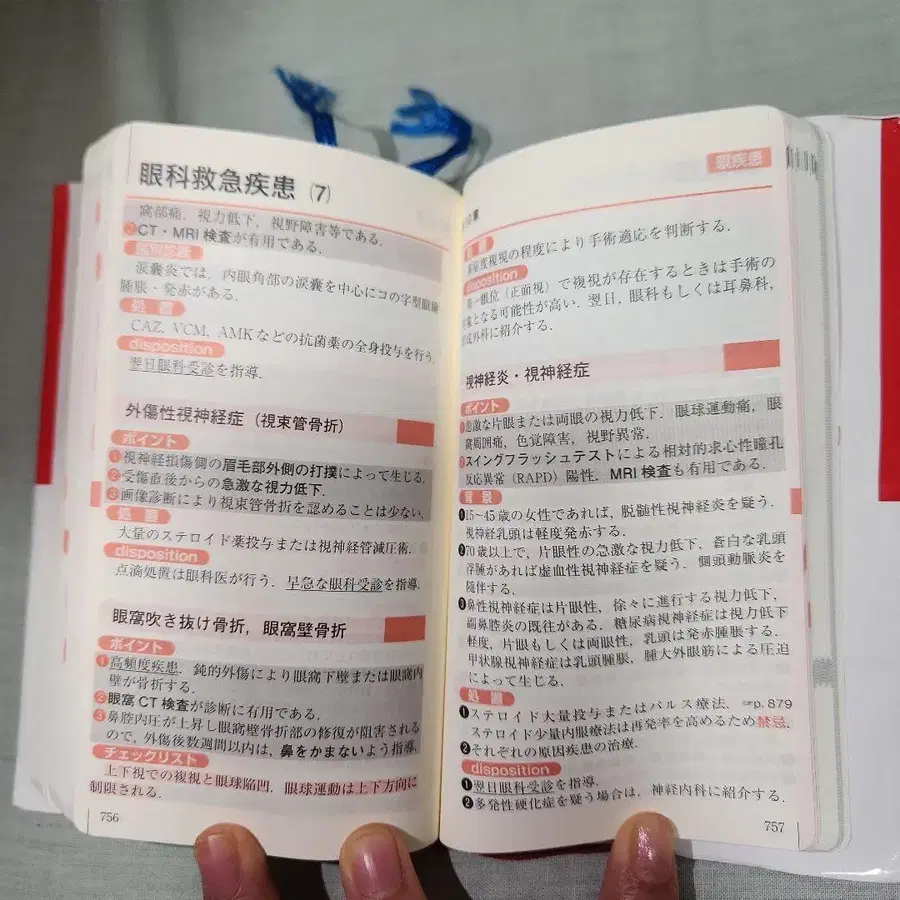 眼科救急疾患 (7)
窩部痛，視力低下，視野障害等である．
❷CT・MRI検査が有用である．
鑑別診断
涙嚢炎では，内眼角部の涙嚢を中心にコの字型眼瞼
腫脹・発赤がある．
処 置
CAZ，VCM，AMKなどの抗菌薬の全身投与を行う．
disposition
翌日眼科受診を指導．
外傷性視神経症（視束管骨折）
ポイント
❶視神経損傷側の眉毛部外側の打撲によって生じる．
❷受傷直後からの急激な視力低下．
❸画像診断により視束管骨折を認めることは少ない．
処 置
大量のステロイド薬投与または視神経管減圧術．
disposition
点滴処置は眼科医が行う．早急な眼科受診を指導．
眼窩吹き抜け骨折，眼窩壁骨折
ポイント
❶高頻度疾患．鈍的外傷により眼窩下壁または眼窩内
壁が骨折する．
❷眼窩CT検査が診断に有用である．
❸鼻腔内圧が上昇し眼窩壁骨折部の修復が阻害される
ので，外傷後数週間以内は，鼻をかまないよう指導．
チェックリスト
上下視での複視と眼球陥凹．眼球運動は上下方向に
制限される．
756
眼疾患
置
度複視の程度により手術適応を判断する．
disposition
第一眼位（正面視）で複視が存在するときは手術の
となる可能性が高い．翌日，眼科もしくは耳鼻科，
形成外科に紹介する．
視神経炎・視神経症
ポイント
❶急激な片眼または両眼の視力低下．眼球運動痛，眼
窩周囲痛，色覚障害，視野異常．
❷スイングフラッシュテストによる相対的求心性瞳孔
反応異常（RAPD）陽性．MRI検査も有用である．
背 景
❶15～45歳の女性であれば，脱髄性視神経炎を疑う．
視神経乳頭は軽度発赤する．
❷70歳以上で，片眼性の急激な視力低下，蒼白な乳頭
浮腫があれば虚血性視神経症を疑う．側頭動脈炎を
随伴する．
❸鼻性視神経症は片眼性，徐々に進行する視力低下，
副鼻腔炎の既往がある．糖尿病視神経症は視力低下
軽度，片眼もしくは両眼性，乳頭は発赤腫脹する．
甲状腺視神経症は乳頭腫脹，腫大外眼筋による圧迫
によって生じる．
処 置
❶ステロイド大量投与またはパルス療法．☞p.879
ステロイド少量内服療法は再発率を高めるため禁忌．
❷それぞれの原因疾患の治療．
disposition
❶翌日眼科受診を指導．
❷多発性硬化症を疑う場合は，神経内科に紹介する．
757